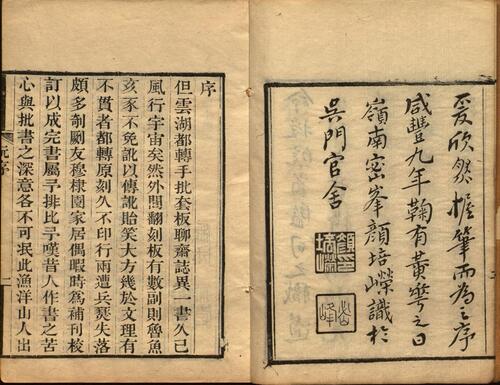 爰欣然握筆而為之序
咸豐九年鞠有黃華之日
嶺南密峯顏培嶸識於
吳門官舍
顏印培嶸
密峰
序
但雲湖都轉手批套板聊齋誌異一書久已
風行宇宙矣然外間翻刻板有數副則魯魚
亥豕不免訛以傳訛貽笑大方幾於文理有
不貫者都轉原刻久不印行兩遭兵燹失落
頗多剞劂友穆棣園家居偶暇時為補刊校
訂以成完書屬予排比予嘆昔人作書之苦
心與批書之深意各不可泯此漁洋山人出
序
二